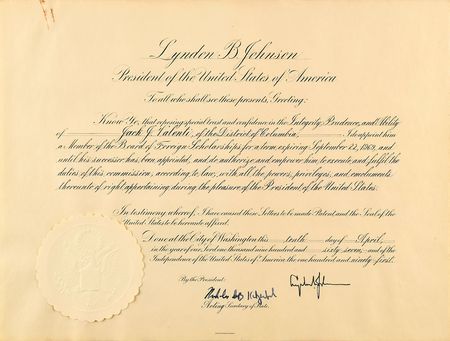 Lyndon B. Johnson
President of the United States of America
To all who shall see these presents, Greeting:
Know Ye, that reposing special trust and confidence in the Integrity, Prudence, and Ability
of Jack J. Valenti, of the District of Columbia, I do appoint him
a Member of the Board of Foreign Scholarships for a term expiring September 22, 1969, and
until his successor has been appointed, and do authorize and empower him to execute and fulfil the
duties of this commission, according to law, with all the powers, privileges, and emoluments
thereunto of right appertaining during the pleasure of the President of the United States.
In testimony whereof, I have caused these Letters to be made Patent, and the Seal of the
United States to be hereunto affixed.
Done at the City of Washington this tenth day of April,
in the year of our Lord one thousand nine hundred and sixty-seven, and of the
Independence of the United States of America the one hundred and ninety-first.
By the President:
Acting Secretary of State.